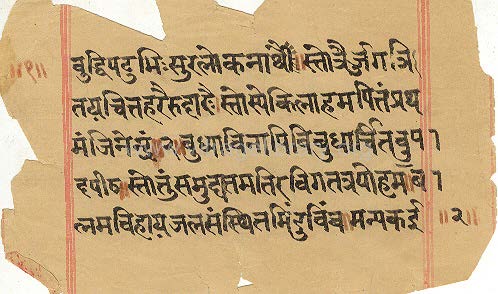 ॥१॥ बुद्धिपटुभिः सुरलोकनाथैः स्तोत्रैर्जगत्रि
तयचित्तहरैरुदारैः स्तोष्ये किलाहमपि तं प्रथ
मं जिनेन्द्रं २ बुध्या विनापि विबुधार्चित
दपीठ स्तोतुं समुद्यतमतिर्विगतत्रपोहम् बा
लम विहाय जलसंस्थितमिंदुबिंब मन्यकइ ॥२